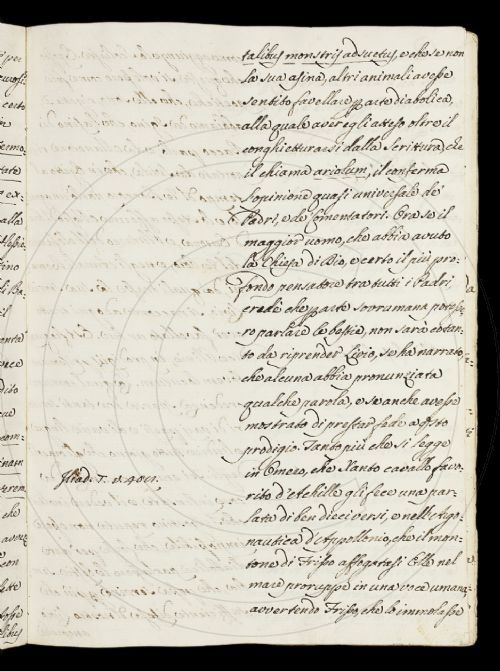 talibus monstris adsuetus, e che se non
la sua asina, altri animali avesse
sentito favellare per arte diabolica,
alla quale aver egli atteso oltre il
conghietturarsi dalla Scrittura, che
il chiama ariolum, il conferma
l'opinione quasi universale de'
Padri, e de' Comentatori. Ora se il
maggior uomo, che abbia avuto
la Chiesa di Dio, e certo il più pro-
fondo pensatore tra tutti i Padri,
crede che per arte sovrumana potesse-
ro parlare le bestie, non sarà cotan-
to da riprender Livio, se ha narrato
che alcuna abbia pronunziata
qualche parola, e se anche avesse
mostrato di prestar fede a
prodigio. Tanto più che si legge
in Omero, che Xanto cavallo favo-
Iliad. T. v. 408.
rito d'Achille gli fece una par-
lata di ben dieci versi, e nell'Argo-
nautica d'Apollonio, che il mon-
tone di Frisso affogatasi Elle nel
mare proruppe in una voce umana
avvertendo Frisso, che lo immolasse